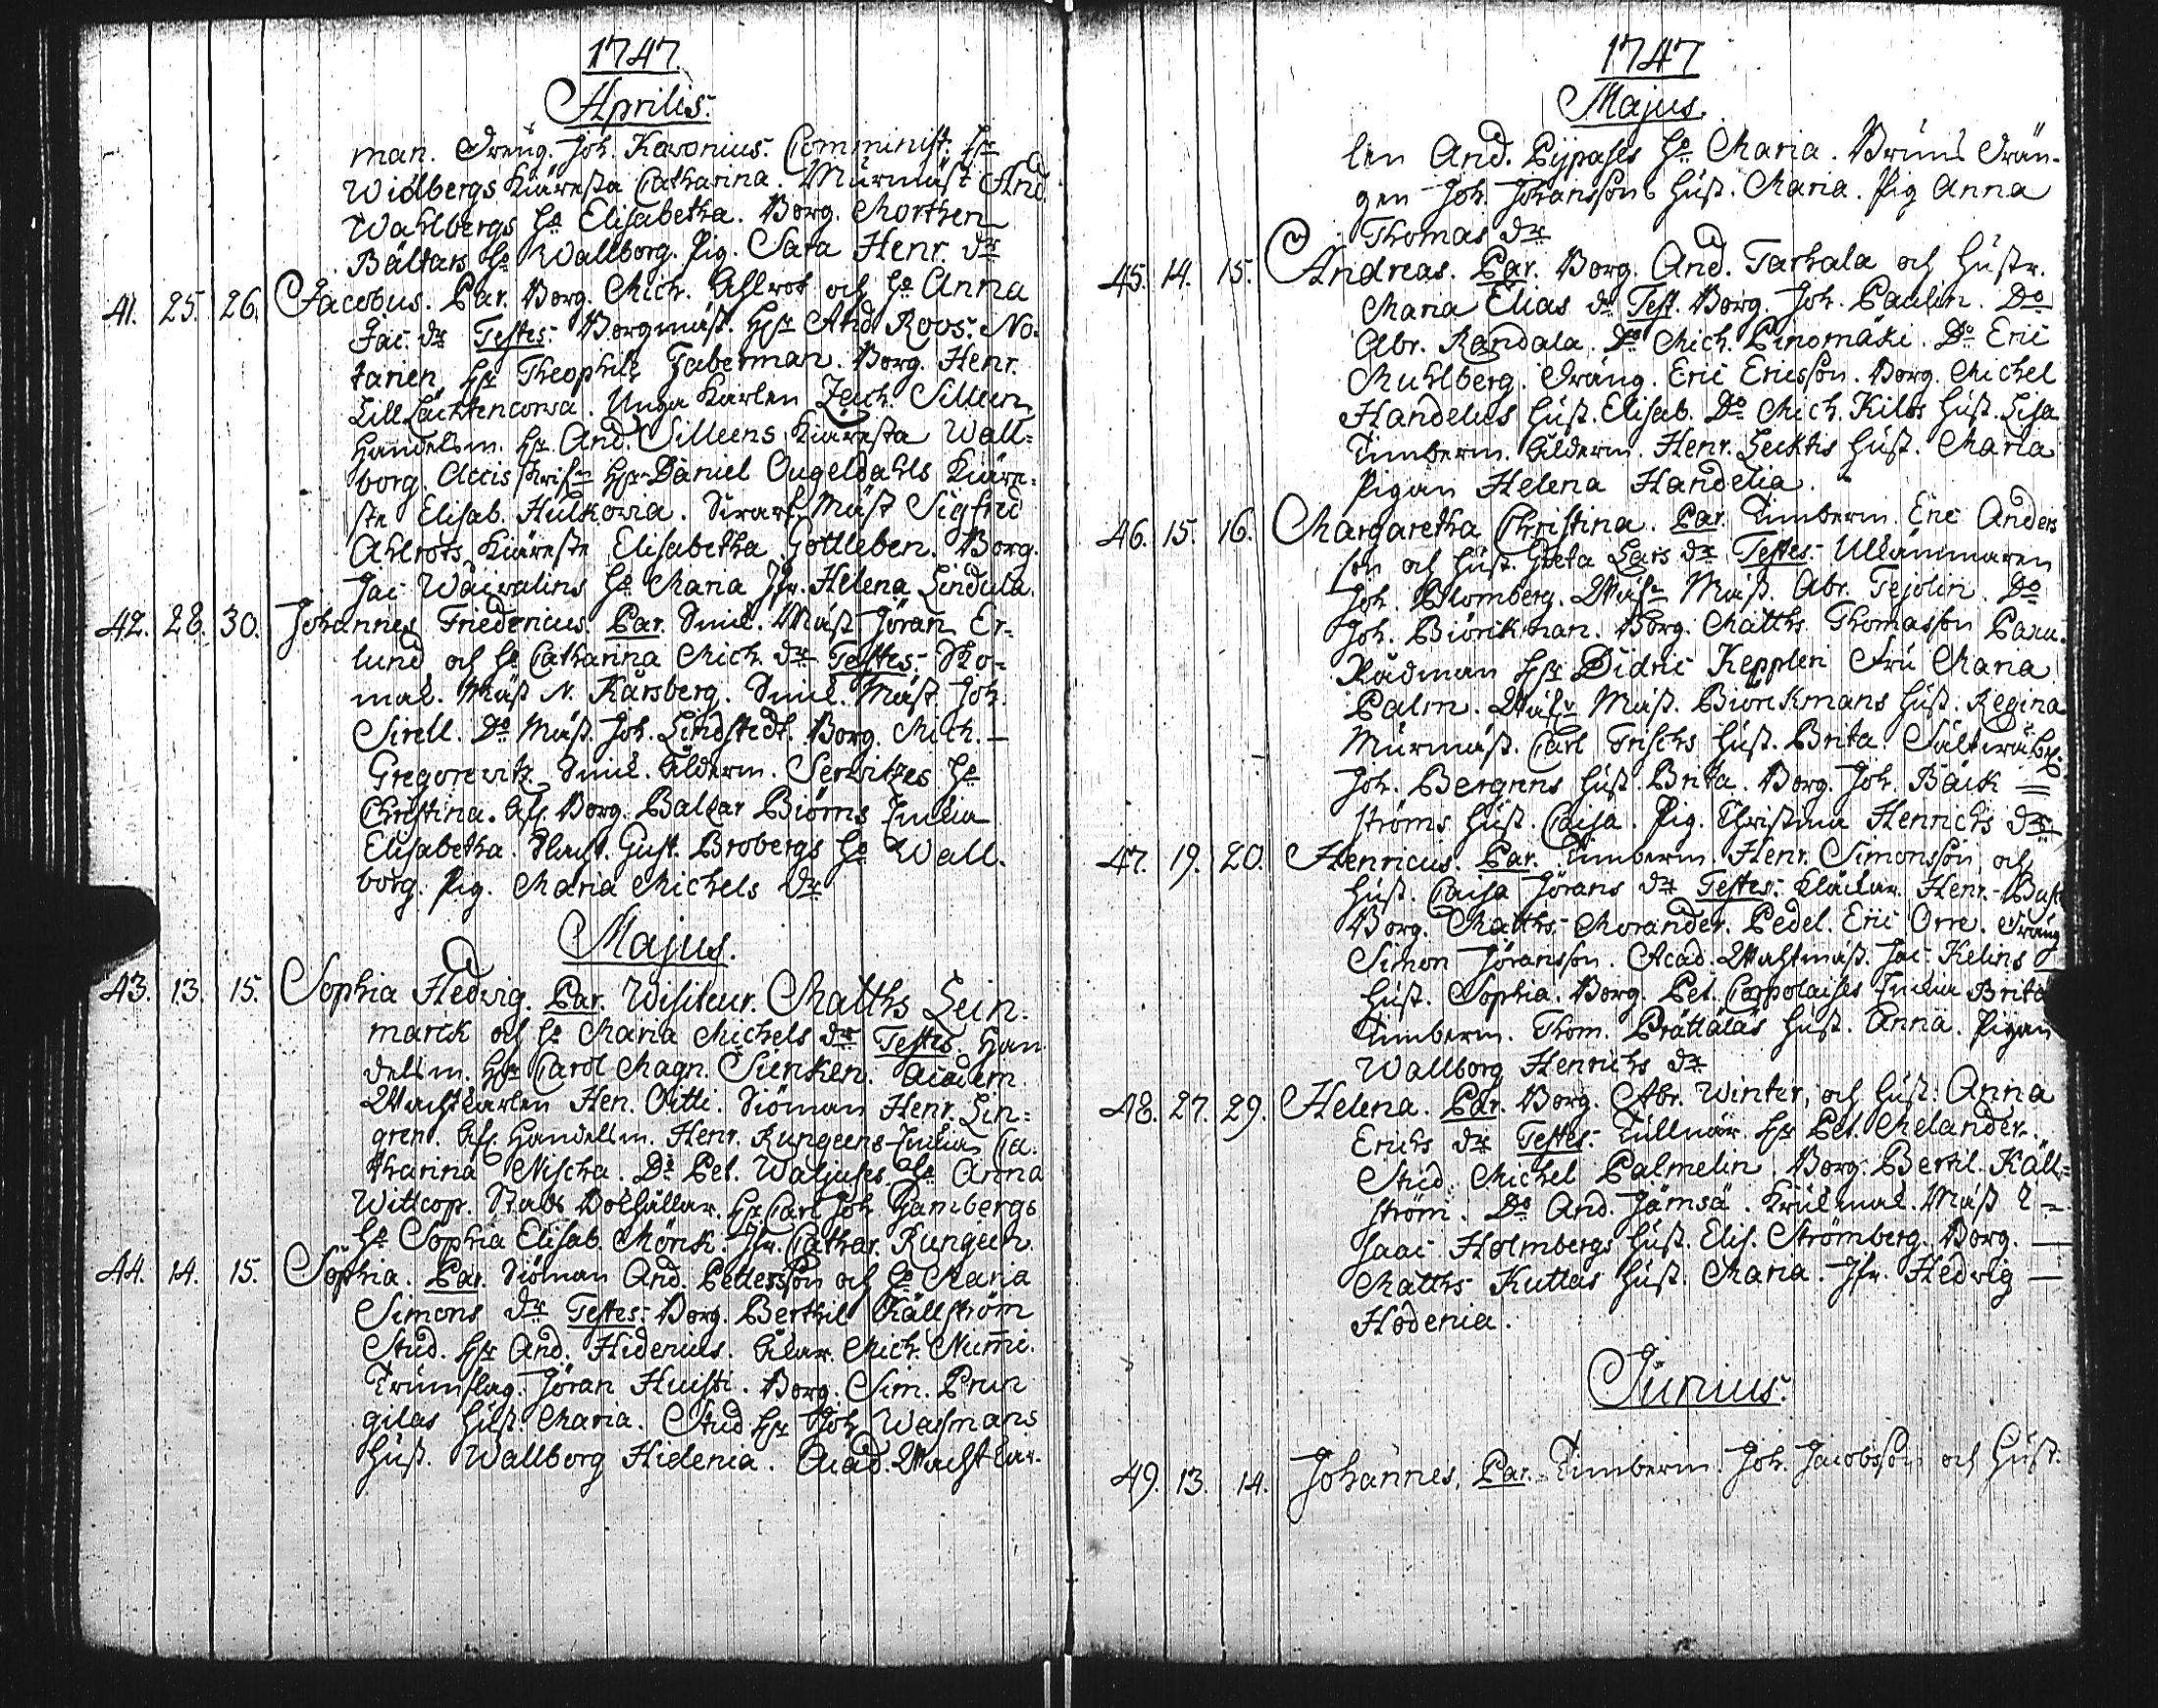 1747.
Aprilis.
man. Dreng. Joh. Kavonius. Comminist. Hr
Widbergs Kiäresta Catharina. Mürmäst And.
Wahlbergs H:o Elisabetha. Borg. Morthen
Bältars H:o Wallborg. Pig. Sara Henr. dr
41. 25. 26. Jacobus. Par. Borg. Mich. Ahlrot och H:o Anna
Jac. dr Testes. Borgmäst. Hr And. Roos. No-
tarien Hr Theophile Faberman. Borg. Henr.
Lill. Unga Karlen Zach. Silleen
Handelsm. Hr And. Silleens Kiäresta Wall-
borg. Accis Hr Daniel Ougeldahls Kiäre-
sta Elisab. Hulkovia. Mäst Sigfrid
Ahlrots Kiäresta Elisabetha Gottleben. Borg.
Jac Waivalins H:o Maria Jfr. Helena Lindula.
42. 28. 30. Johannes Friedericus. Par. Smed. Mäst Jöran Er-
lund och H:o Catharina Mich. dr Testes. Sko-
mak. Mäst N. Kårsberg. Smed. Mäst. Joh.
Sirell. Do Mäst. Joh. Lindstedt. Borg. Mich. —
Gregorewitz. Smed. Ålderm. Serwitzes H:o
Christina. Afl. Borg. Baltzar Biörns Enkia
Elisabetha. Slacht. Gust. Brobergs H:o Wall-
borg. Pig. Maria Michels dr
Majus.
43. 13. 15. Sophia Hedvig. Par. Visiteur. Matths Lein-
marck och H:o Maria Michels dr Testes. Han-
delsm. Hr Carol Magn. Sünken. Academ.
Wachtkarlen Hen. Oitti. Siöman Henr. Lin-
gren. Afl. Handelsm. Henr. Rungeens Enkia Ca-
tharina Nischa. Do Pet. H:o Anna
Wittcop. Stads Bokhållar. Hr Carl Joh. Hambergs
H:o Sophia Elisab. Mörck. Jfr. Cathar. Rungeen.
44. 14. 15. Sophia. Par. Siöman And. Pettersson och H:o Maria
Simons dr Testes. Borg. Berthil Källström
Stud. Hr And. Hidenius. Åkar. Mich. Numi.
Trumslag. Jöran Huisti. Borg. Sim. Prun
gilas Hust. Maria. Stud. Hr Joh. Wasmans
Hust. Wallborg Hidenia. Acad. Wachtkar-
1747
Majus.
len And. Pijpases H:o Maria. Bruns Drän-
gen Joh. Johanssons Hust. Maria. Pig Anna
Thomas dr
45. 14. 15. Andreas. Par. Borg. And. Tarkala och Hustr.
Maria Elias dr Test. Borg. Joh. Paulin. Do
Abr. Randala. Do Mich. Pinomäki. Do Eric
Muhlberg. Dräng. Eric Ericsson. Borg. Michel
Handelius Hust. Elisab. Do Mich. Kilos Hust. Lisa
Timberm. Ålderm. Henr. Leckths Hust. Maria
Pigan Helena Handelia.
46. 15. 16. Margaretha Christina. Par. Timberm. Eric Anders
son och Hust. Greta Lars dr Testes. Ullkammaren
Joh. Blomberg. Mäst. Abr. Tejolin. Do
Joh. Biörckman. Borg. Matths Thomasson Pacu.
Rådman Hr Didric Kepplen Fru Maria
Palm. Mäst. Biörckmans Hust. Regina
Mürmäst. Carl Frischs Hust. Brita.
Joh. Bergrens Hust. Brita. Borg. Joh. Bäck =
ströms Hust. Caisa. Pig. Christina Henrichs dr
47. 19. 20. Henricus. Par. Timberm. Henr. Simonsson och
Hust. Caisa Jörans dr Testes. Klåckar. Henr.
Borg. Matths Morander. Pedel. Eric Orre. Dräng
Simon Jöransson. Acad. Wachtmäst. Jac. Kelins
Hust. Sophia. Borg. Pet. Corpolaises Enkia Brita
Timberm. Thom. Prättäläs Hust. Anna. Pigan
Wallborg Henrichs dr
48. 27. 29. Helena. Par. Borg. Abr. Winter, och Hust. Anna
Erichs dr Testes. Tullnär. Hr Pet. Melander.
Stud. Michel Palmelin. Borg. Bertil. Käll-
ström. Do And. Jämsä. Krukmak. Mäst I-
saac Holmbergs Hust. Elis. Strömberg. Borg. —
Matths Kuttas Hust. Maria. Jfr. Hedvig —
Hodenia.
Junius.
49. 13. 14. Johannes. Par. Timberm. Joh. Jacobsson och Hust.